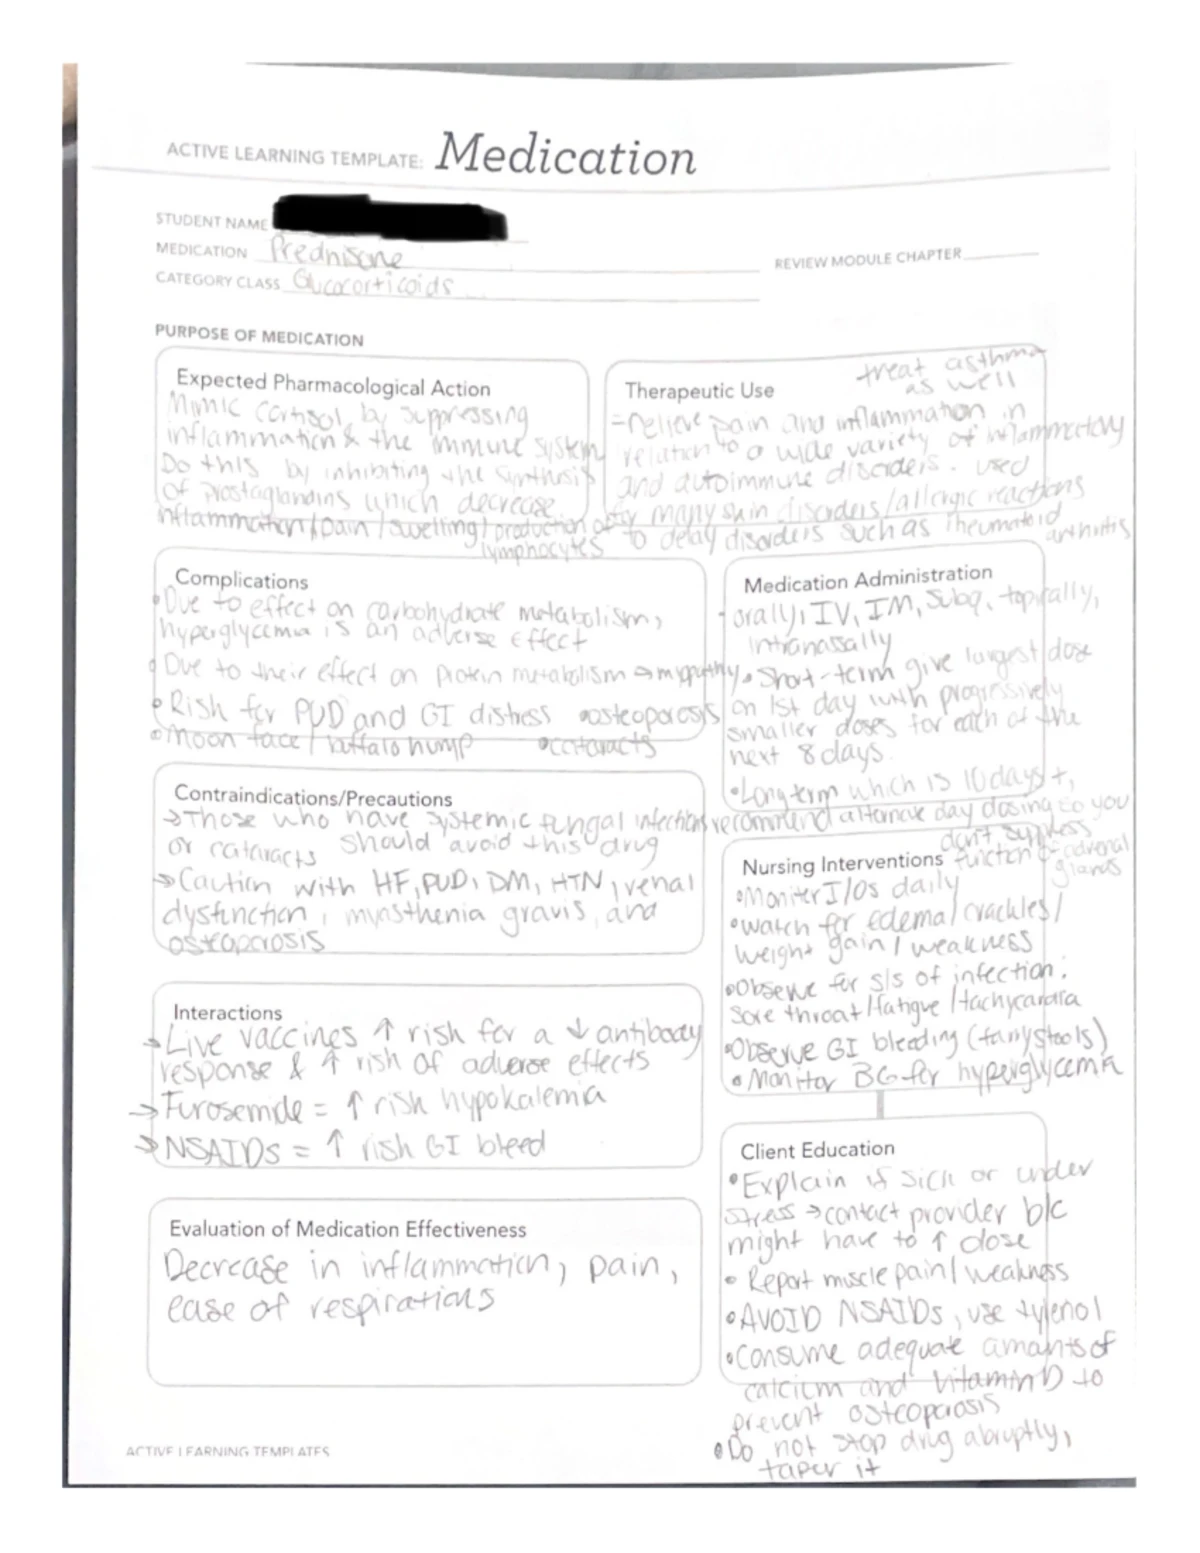 ACTIVE LEARNING TEMPLATE: Medication
STUDENT NAME
MEDICATION Prednisone
REVIEW MODULE CHAPTER
CATEGORY CLASS Glucocorticoids
PURPOSE OF MEDICATION
Expected Pharmacological Action
Mimic cortisol by suppressing
inflammation & the immune system
Do this by inhibiting the synthesis
of prostaglandins which decrease
inflammation/pain/swelling/production of
lymphocytes
Therapeutic Use
treat asthma
as well
-relieve pain and inflammation in
relation to a wide variety of inflammatory
and autoimmune disorders. used
for many skin disorders/allergic reactions
to delay disorders such as rheumatoid
arthritis
Complications
•Due to effect on carbohydrate metabolism,
hyperglycemia is an adverse effect
•Due to their effect on protein metabolism →myopathy
•Risk for PUD and GI distress •osteoporosis
•moon face/buffalo hump •cataracts
Medication Administration
- orally, IV, IM, subq, topically,
intranasally
•Short-term give largest dose
on 1st day with progressively
smaller doses for each of the
next 8 days.
•Long term which is 10 days +,
recommend alternate day dosing so you
don't suppress
function of adrenal
glands
Contraindications/Precautions
→Those who have systemic fungal infections
or cataracts should avoid this drug
→Caution with HF, PUD, DM, HTN, renal
dysfunction, myasthenia gravis, and
osteoporosis
Nursing Interventions
•Monitor I/Os daily
•watch for edema/crackles/
weight gain/weakness
•Observe for s/s of infection:
sore throat/fatigue/tachycardia
•Observe GI bleeding (tarry stools)
•Monitor BG for hyperglycemia
Interactions
→Live vaccines ↑ risk for a ↓ antibody
response & ↑ risk of adverse effects
→Furosemide = ↑ risk hypokalemia
→NSAIDs = ↑ risk GI bleed
Client Education
•Explain if sick or under
stress →contact provider b/c
might have to ↑ dose
•Report muscle pain/weakness
•AVOID NSAIDs, use tylenol
•Consume adequate amounts of
calcium and vitamin D to
prevent osteoporosis
•Do not stop drug abruptly,
taper it
Evaluation of Medication Effectiveness
Decrease in inflammation, pain,
ease of respirations
ACTIVE LEARNING TEMPLATES